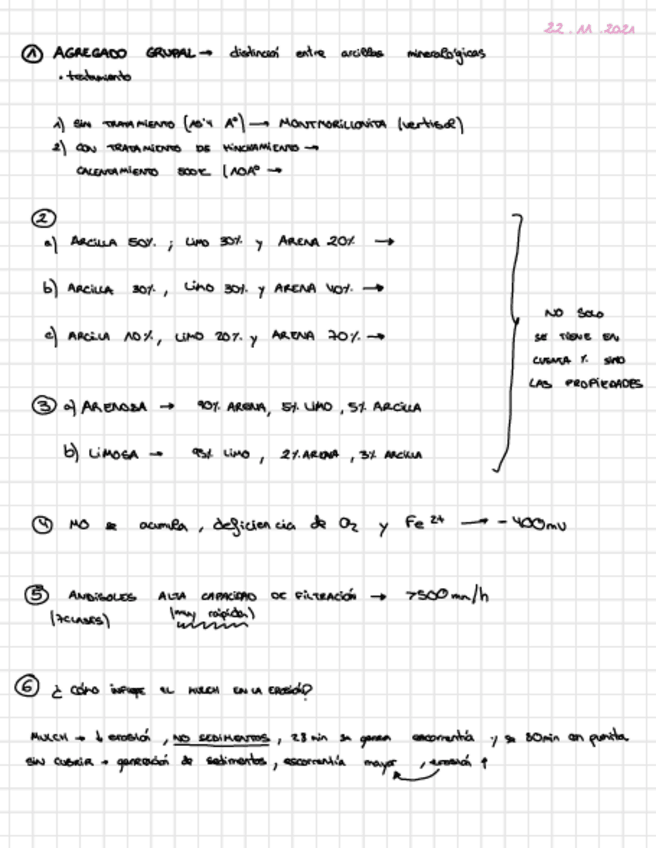 22.11.2021
① AGREGADO GRUPAL → distinción entre arcillas mineralógicas
• tratamiento
1) SIN TRATAMIENTO (10'4 A°) → MONTMORILLONITA (vertisol)
2) CON TRATAMIENTO DE HINCHAMIENTO →
CALENTAMIENTO 500°C (10A° →
②
a) ARCILLA 50%. ; LIMO 30% y ARENA 20% →
b) ARCILLA 30%, LIMO 30% y ARENA 40% →
c) ARCILLA 10%, LIMO 20% y ARENA 70% →
NO SOLO
SE TIENE EN
CUENTA % SINO
LAS PROPIEDADES
③ a) ARENOSA → 90% ARENA, 5% LIMO, 5% ARCILLA
b) LIMOSA → 95% LIMO, 2% ARENA, 3% ARCILLA
④ MO se acumula, deficiencia de O₂ y Fe²⁺ → -400mv
⑤ ANDISOLES ALTA CAPACIDAD DE FILTRACIÓN → >500mm/h
(7CLASES) (muy rápida)
⑥ ¿ CÓMO INFLUYE EL MULCH EN LA EROSIÓN?
MULCH → ↓ erosión, NO SEDIMENTOS, 23 min se genera escorrentía y 30min en
SIN CUBRIR → generación de sedimentos, escorrentía mayor, erosión ↑